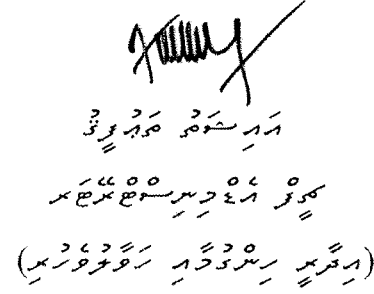 އައިޝަތު ތަޢުފީޤު
ޗީފް އެޑްމިނިސްޓްރޭޓަރ
(އިދާރީ ހިންގުމާއި ހަވާލުވެހުރި)